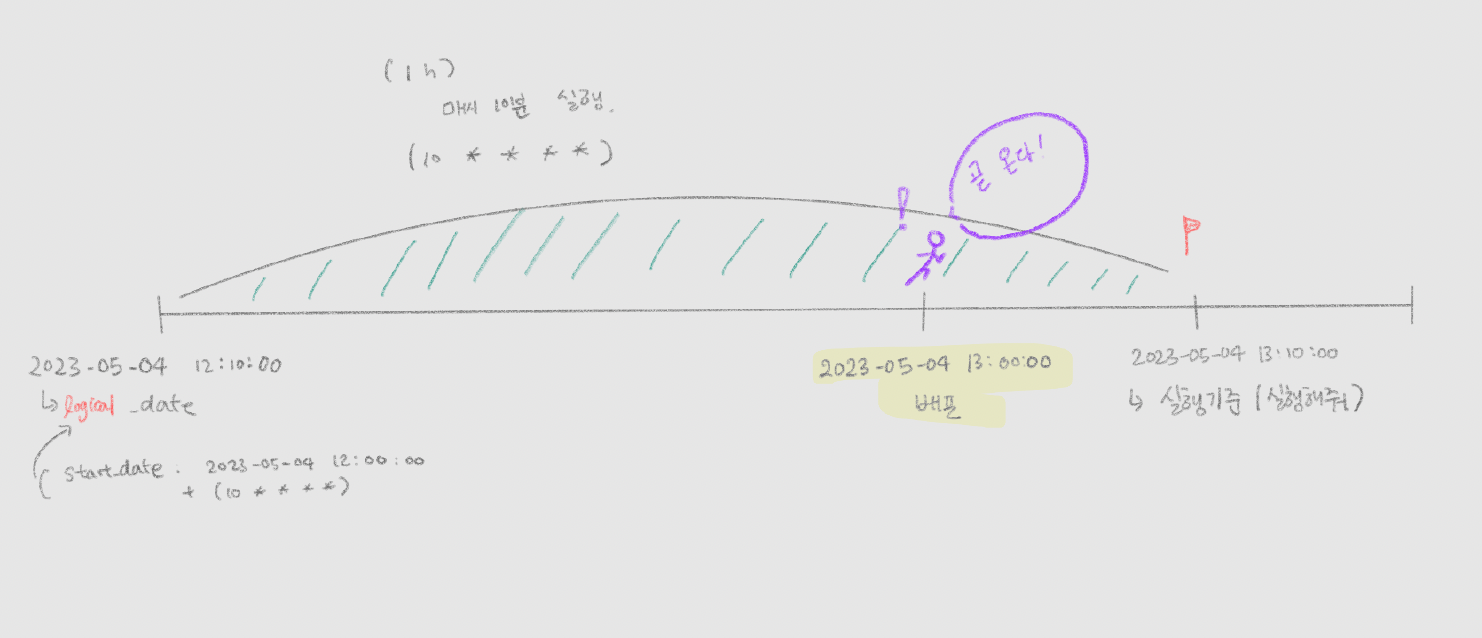 (1h)
매시 10분 실행.
(10 * * * *)
!
곧 온다!
2023-05-04 12:10:00
↳ logical_date
start_date. 2023-05-04 12:00:00
+ (10 * * * *)
2023-05-04 13:00:00
배포
2023-05-04 13:10:00
↳ 실행기준 (실행해줘)